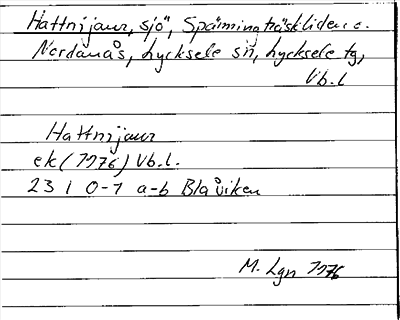 Hattnijaur, sjö, Spänningträskliden o.
Nordanås, Lycksele sn, Lycksele tg,
Vb.l
Hattnijaur
ek (1976) Vb.l.
23 I 0-1 a-b Blåviken
M. Lgn 1976